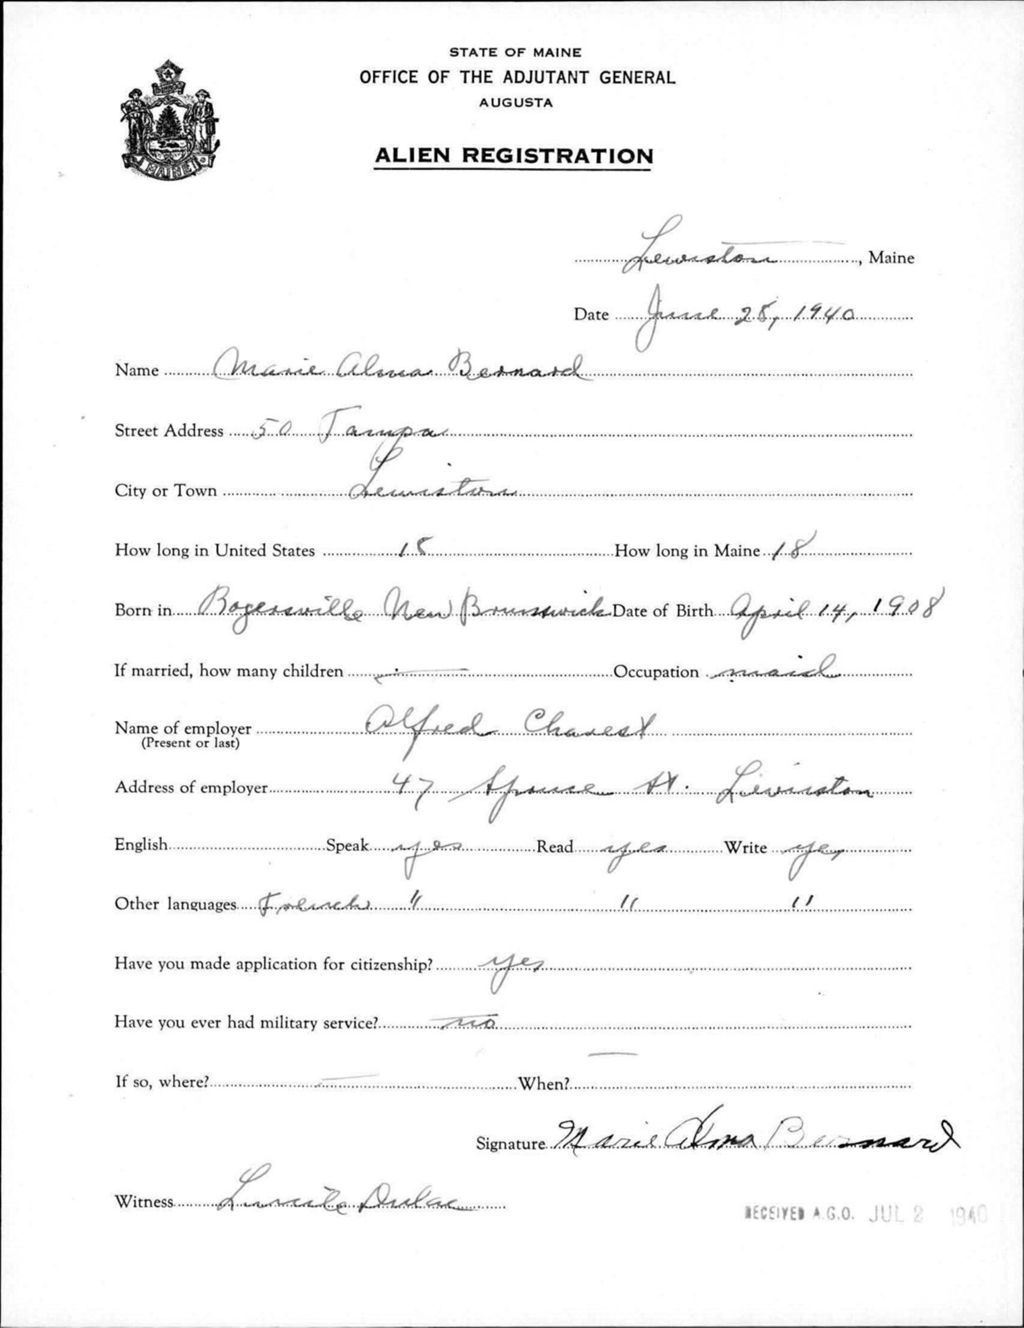 STATE OF MAINE
OFFICE OF THE ADJUTANT GENERAL
AUGUSTA
ALIEN REGISTRATION
MAINE
Lewiston, Maine
Date June 28, 1940
Name Marie Alma Bernard
Street Address 50 Tampa
City or Town Lewiston
How long in United States 18 How long in Maine 18
Born in Rogersville New Brunswick Date of Birth April 14, 1908
If married, how many children — Occupation maid
Name of employer Alfred Charest
(Present or last)
Address of employer 47 Spruce St. Lewiston
English Speak yes Read yes Write yes
Other languages French " " "
Have you made application for citizenship? yes
Have you ever had military service? no
If so, where? — When? —
Signature Marie Alma Bernard
Witness Lucille Dulac
RECEIVED A.G.O. JUL 2 1940